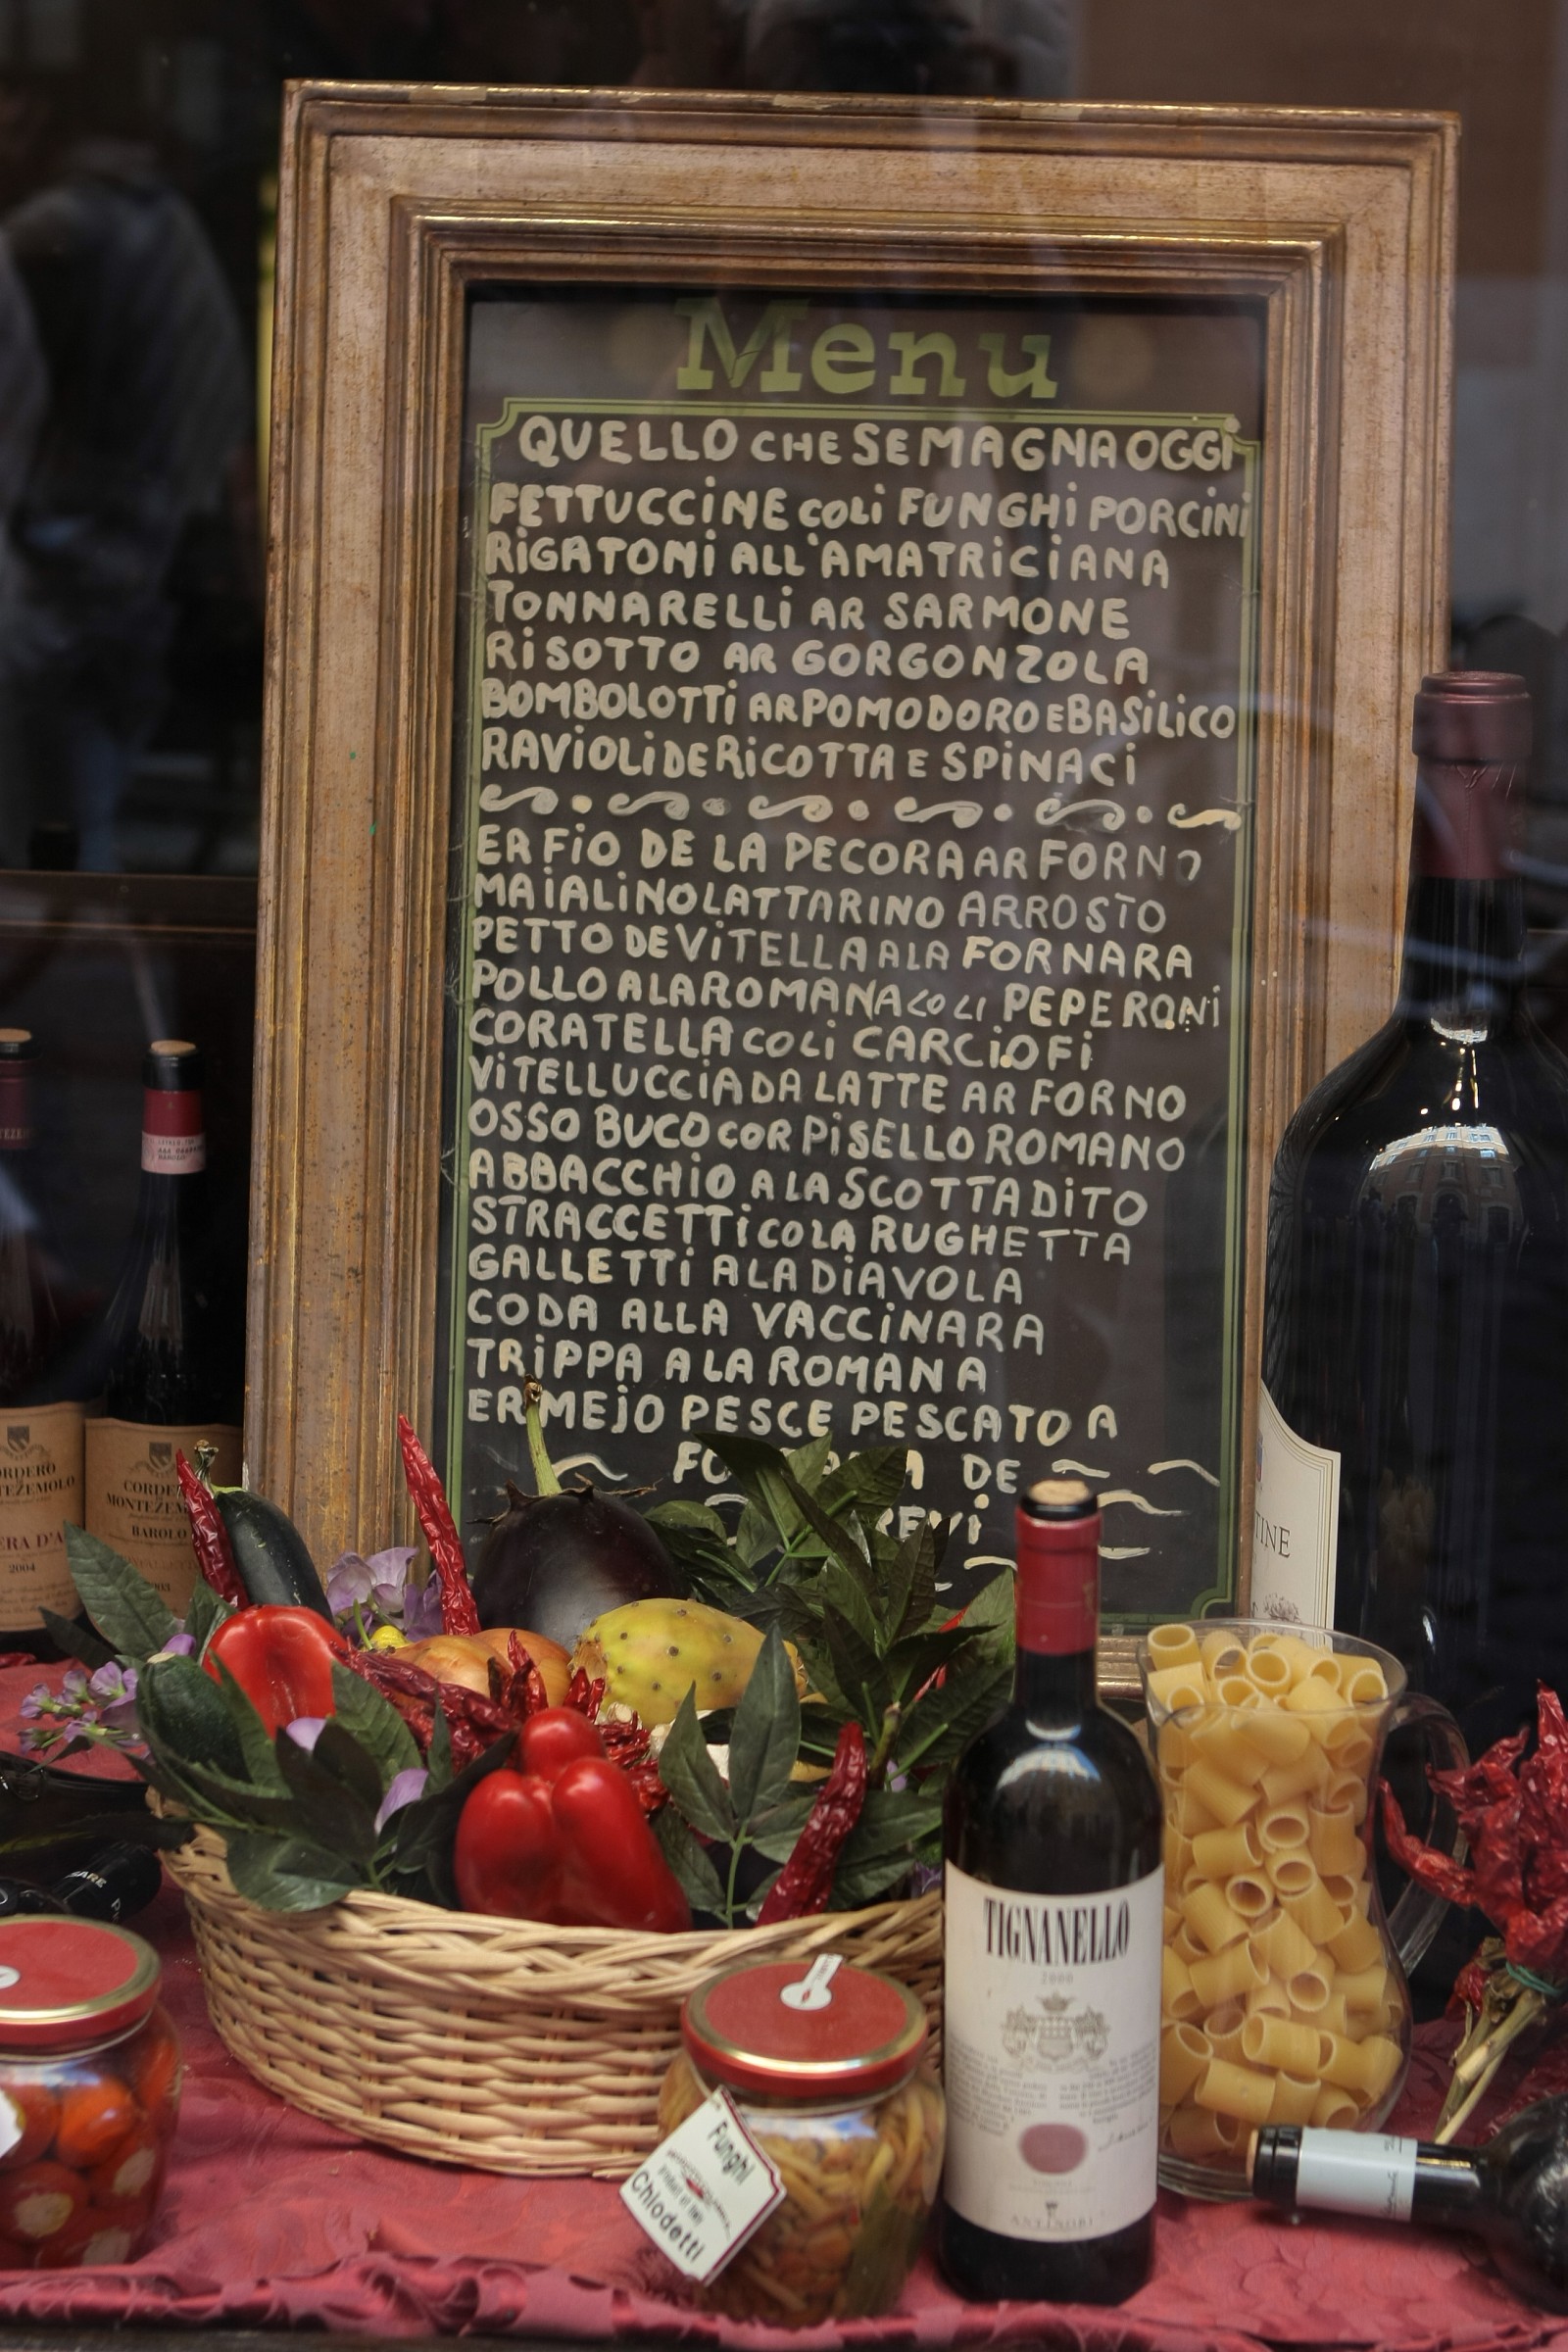 Menu
QUELLO CHE SE MAGNA OGGI
FETTUCCINE COLI FUNGHI PORCINI
RIGATONI ALL'AMATRICIANA
TONNARELLI AR SARMONE
RISOTTO AR GORGONZOLA
BOMBOLOTTI AR POMODORO E BASILICO
RAVIOLI DE RICOTTA E SPINACI
ER FIO DE LA PECORA AR FORNO
MAIALINO LATTARINO ARROSTO
PETTO DE VITELLA A LA FORNARA
POLLO A LA ROMANA CO LI PEPERONI
CORATELLA COLI CARCIOFI
VITELLUCCIA DA LATTE AR FORNO
OSSO BUCO COR PISELLO ROMANO
ABBACCHIO A LA SCOTTADITO
STRACCETTI COLA RUGHETTA
GALLETTI A LA DIAVOLA
CODA ALLA VACCINARA
TRIPPA A LA ROMANA
ER MEJO PESCE PESCATO A
DE
CORDERO
MONTEZEMOLO
BAROLO
2004
TIGNANELLO
2006
ANTINORI
Funghi
Chiodetti